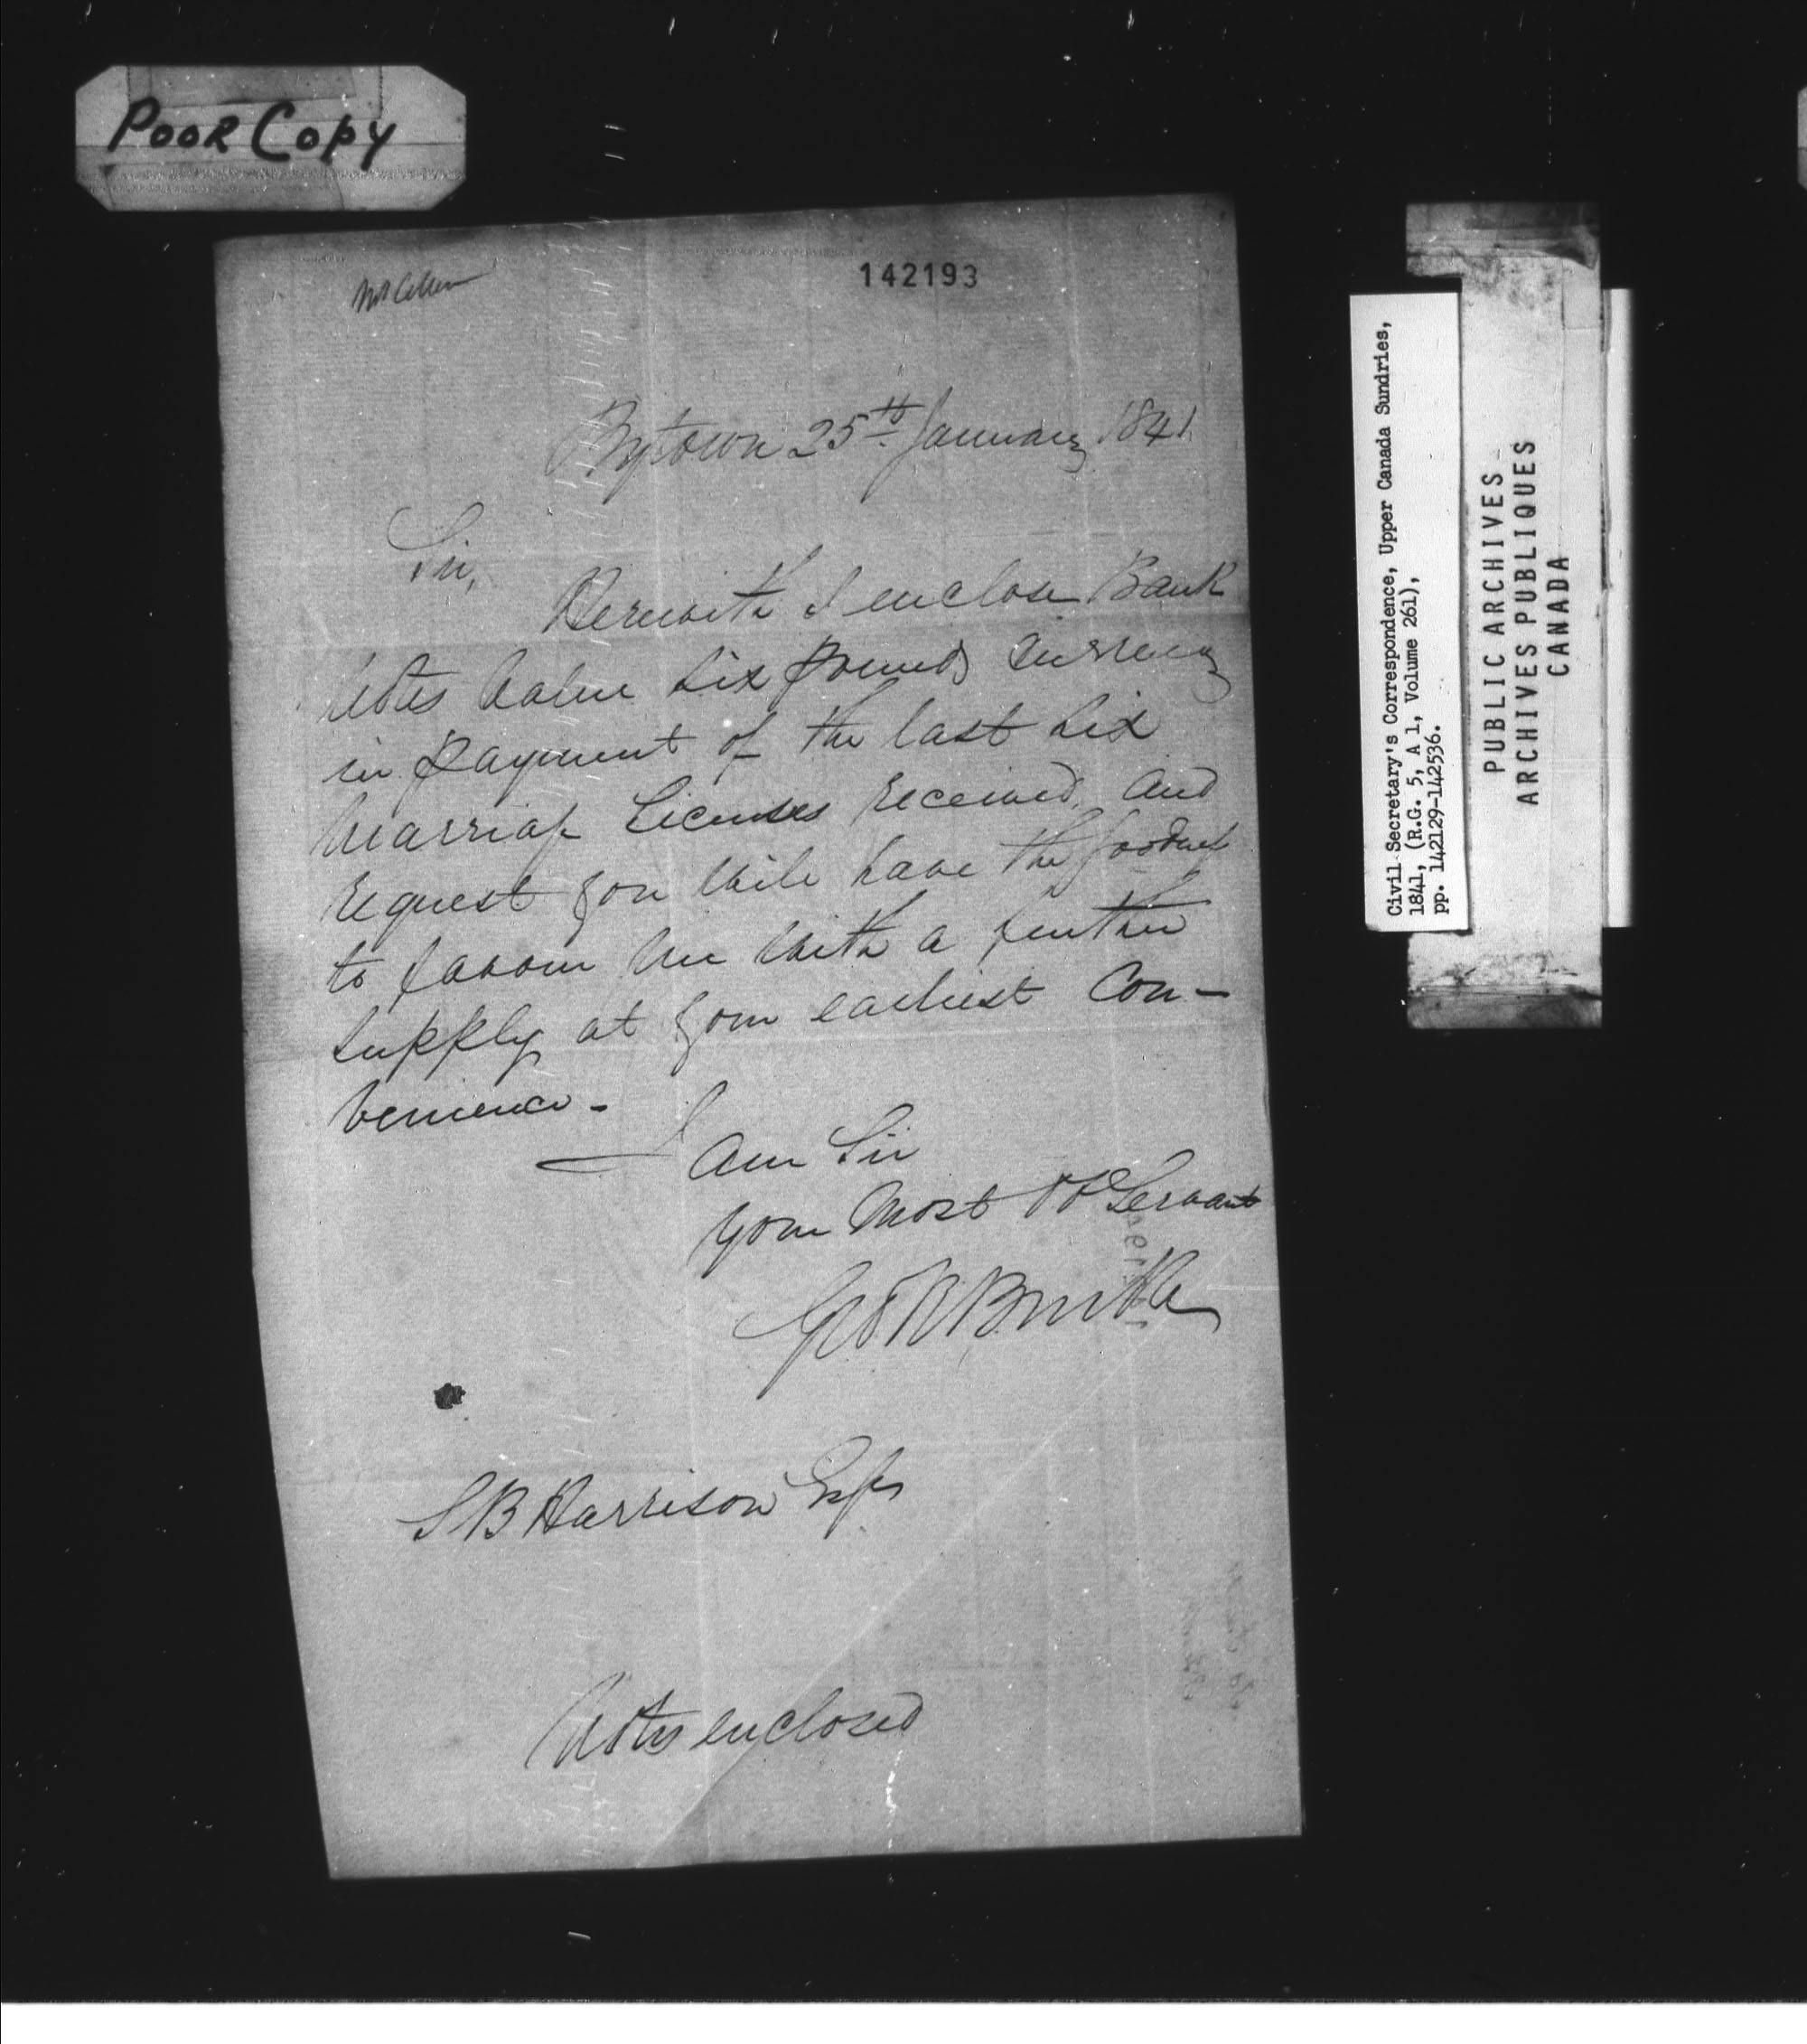 Poor Copy
142193
Bytown 25th January 1841
Sir,
Herewith I enclose Bank
Notes Value Six pounds Currency
in payment of the last Six
Marriage Licenses received, and
request you will have the goodness
to favour me with a further
supply at your earliest Con-
venience -
I am Sir
your Most Ob Servant
Geo R Burke
S B Harrison Esqr
Notes enclosed
Civil Secretary's Correspondence, Upper Canada Sundries,
1841, (R.G. 5, A 1, Volume 261),
pp. 142129-142536.
PUBLIC ARCHIVES
ARCHIVES PUBLIQUES
CANADA